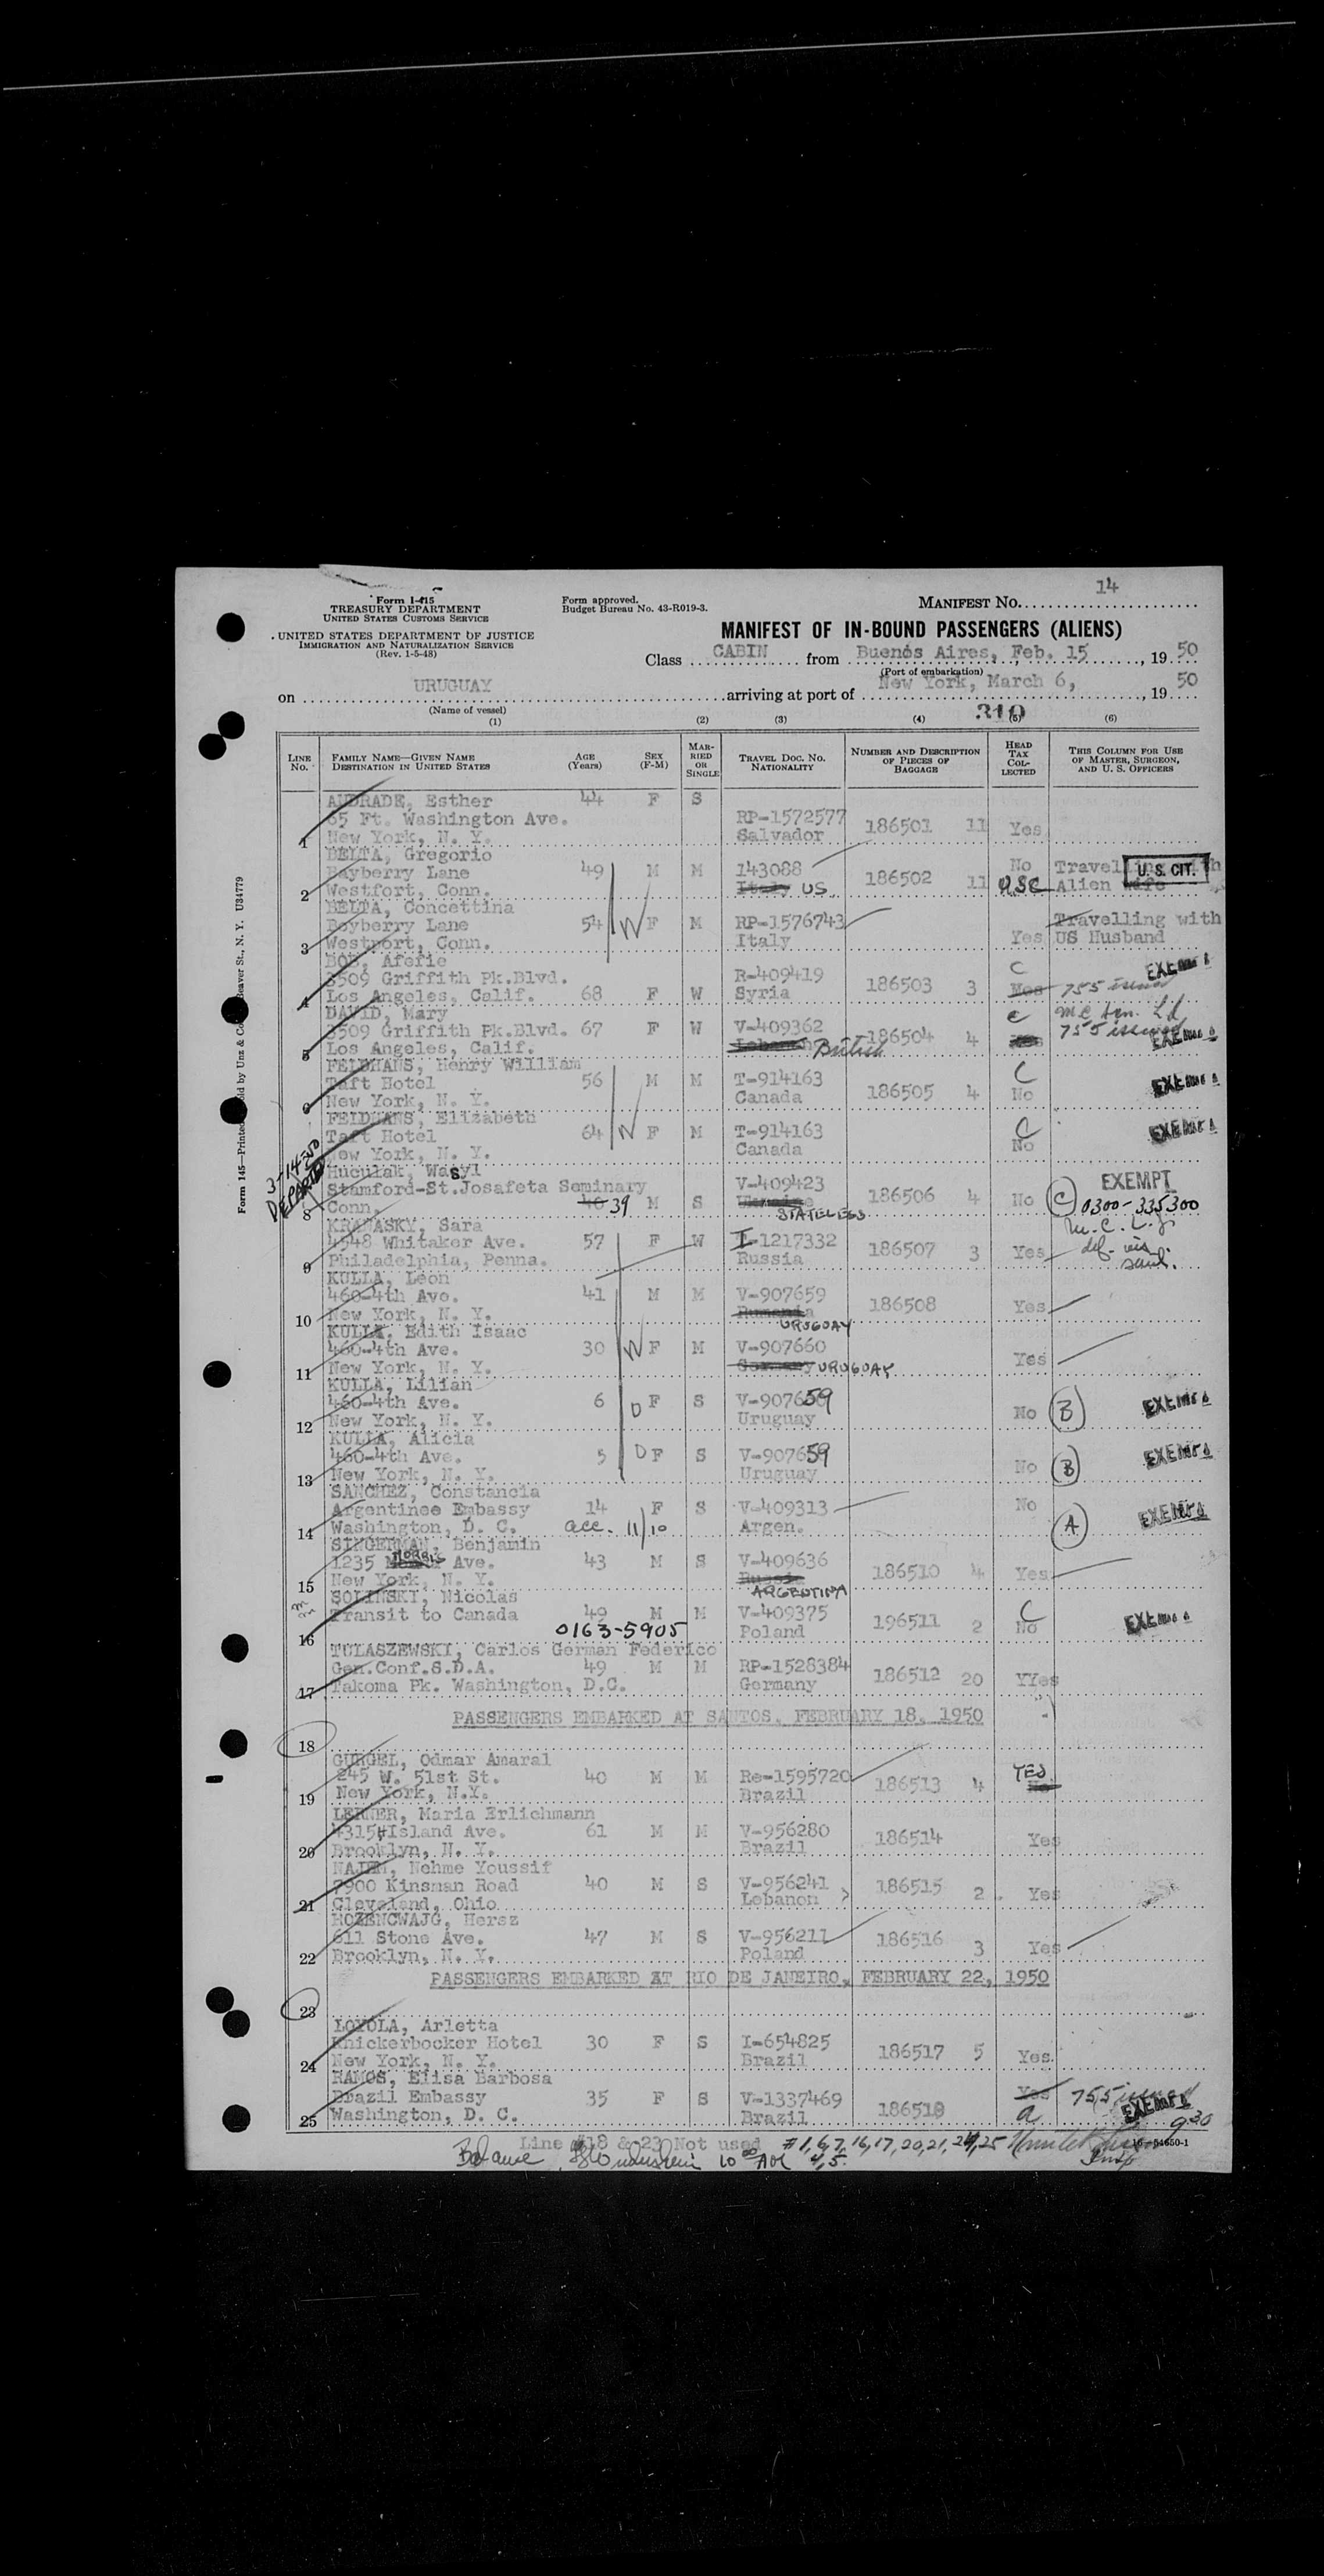 14
Form I-415
TREASURY DEPARTMENT
UNITED STATES CUSTOMS SERVICE
UNITED STATES DEPARTMENT OF JUSTICE
IMMIGRATION AND NATURALIZATION SERVICE
(Rev. 1-5-48)
Form approved.
Budget Bureau No. 43-R019-3.
MANIFEST NO.
MANIFEST OF IN-BOUND PASSENGERS (ALIENS)
Class CABIN from Buenos Aires, Feb. 15, 1950
(Port of embarkation)
on URUGUAY arriving at port of New York, March 6, 1950
(Name of vessel)
310
(1) (2) (3) (4) (5) (6)
LINE NO. FAMILY NAME—GIVEN NAME DESTINATION IN UNITED STATES AGE (Years) SEX (F-M) MARRIED OR SINGLE TRAVEL DOC. NO. NATIONALITY NUMBER AND DESCRIPTION OF PIECES OF BAGGAGE HEAD TAX COLLECTED THIS COLUMN FOR USE OF MASTER, SURGEON, AND U. S. OFFICERS
ANDRADE, Esther 44 F S
65 Ft. Washington Ave. RP-1572577 186501 11 Yes
1 New York, N. Y. Salvador
BELTA, Gregorio
Bayberry Lane 49 M M 143088 186502 11 No Travelling with U. S. CIT.
2 Westfort, Conn. Italy US USC Alien wife
BELTA, Concettina
Bayberry Lane 54 W F M RP-1576743 Travelling with
3 Westport, Conn. Italy Yes US Husband
BOB, Afefie
3509 Griffith Pk.Blvd. R-409419 186503 3 C EXEMPT
4 Los Angeles, Calif. 68 F W Syria Yes 755 issued
DAVID, Mary
3509 Griffith Pk.Blvd. 67 F W V-409362 186504 4 C 755 issued
5 Los Angeles, Calif. Lebanon British Yes EXEMPT
FELDHANS, Henry William
Taft Hotel 56 M M T-914163 186505 4 C EXEMPT
6 New York, N. Y. Canada No
FELDHANS, Elizabeth
Taft Hotel 64 W F M T-914163 C EXEMPT
New York, N. Y. Canada No
3-14-50
DEPARTED
Huculak, Wasyl
Stamford-St.Josafeta Seminary V-409423 186506 4 No C EXEMPT
8 Conn. 40 39 M S Ukraine STATELESS 0300-335300
KRAVASKY, Sara
4548 Whitaker Ave. 57 F W I-1217332 186507 3 Yes
9 Philadelphia, Penna. Russia
KULLA, Leon
460-4th Ave. 41 M M V-907659 186508 Yes
10 New York, N. Y. Rumania URUGUAY
KULLA, Edith Isaac
460-4th Ave. 30 W F M V-907660 Yes
11 New York, N. Y. Germany URUGUAY
KULLA, Lilian
460-4th Ave. 6 D F S V-907659 No B EXEMPT
12 New York, N. Y. Uruguay
KULLA, Alicia
460-4th Ave. 5 D F S V-907659 No B EXEMPT
13 New York, N. Y. Uruguay
SANCHEZ, Constancia
Argentinee Embassy 14 F S V-409313 No A EXEMPT
14 Washington, D. C. acc. 11/10 Argen.
SINGERMAN, Benjamin
1235 MORRIS Ave. 43 M S V-409636 186510 4 Yes
15 New York, N. Y. Russia ARGENTINA
SOLINSKI, Nicolas
Transit to Canada 49 M M V-409375 196511 2 C No EXEMPT
16 0163-5905 Poland
TULASZEWSKI, Carlos German Federico
Gen.Conf.S.D.A. 49 M M RP-1528384 186512 20 YYes
17 Takoma Pk. Washington, D.C. Germany
PASSENGERS EMBARKED AT SANTOS, FEBRUARY 18, 1950
18
GURGEL, Odmar Amaral
245 W. 51st St. 40 M M Re-1595720 186513 4 YES
19 New York, N.Y. Brazil No
LERNER, Maria Erlichmann
4315 Island Ave. 61 M M V-956280 186514 Yes
20 Brooklyn, N. Y. Brazil
NAJEM, Nehme Youssif
7900 Kinsman Road 40 M S V-956241 186515 2 Yes
21 Cleveland, Ohio Lebanon
ROZENCWAJG, Hersz
611 Stone Ave. 47 M S V-956211 186516 3 Yes
22 Brooklyn, N. Y. Poland
PASSENGERS EMBARKED AT RIO DE JANEIRO, FEBRUARY 22, 1950
23
LOYOLA, Arletta
Knickerbocker Hotel 30 F S I-654825 186517 5 Yes
24 New York, N. Y. Brazil
RAMOS, Elisa Barbosa
Brazil Embassy 35 F S V-1337469 186518 Yes 755 issued
25 Washington, D. C. Brazil a EXEMPT 930
Line #18 & 23 Not used #1,6,7,16,17,20,21,24,25 16-54650-1
Balance 10 00 AM 4,5. Insp
Form 145—Printed Sold by Unz & Co. Beaver St., N. Y. U34779